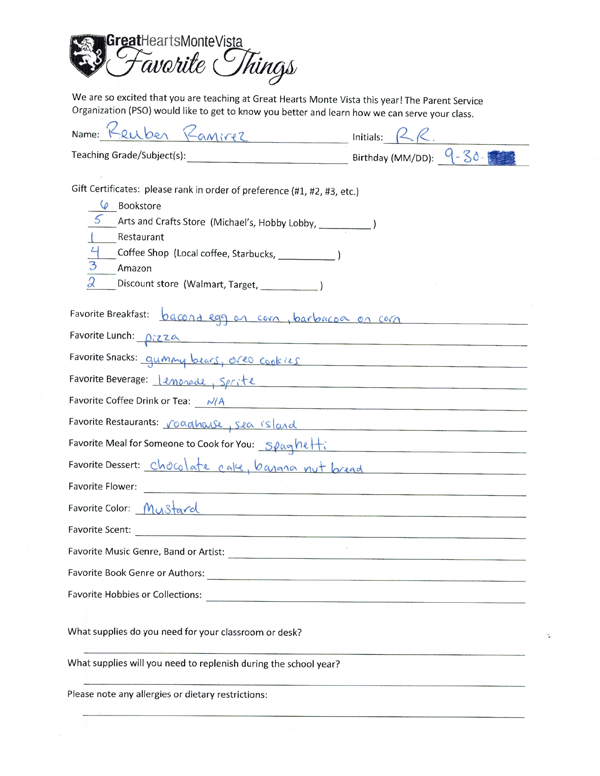 GreatHearts MonteVista
Favorite Things
We are so excited that you are teaching at Great Hearts Monte Vista this year! The Parent Service
Organization (PSO) would like to get to know you better and learn how we can serve your class.
Name: Reuben Ramirez Initials: R.R.
Teaching Grade/Subject(s): Birthday (MM/DD): 9-30-
Gift Certificates: please rank in order of preference (#1, #2, #3, etc.)
6 Bookstore
5 Arts and Crafts Store (Michael's, Hobby Lobby, )
1 Restaurant
4 Coffee Shop (Local coffee, Starbucks, )
3 Amazon
2 Discount store (Walmart, Target, )
Favorite Breakfast: bacond egg on corn, barbacoa on corn
Favorite Lunch: pizza
Favorite Snacks: gummy bears, oreo cookies
Favorite Beverage: lemonade, Sprite
Favorite Coffee Drink or Tea: N/A
Favorite Restaurants: roadhouse, sea island
Favorite Meal for Someone to Cook for You: spaghetti
Favorite Dessert: chocolate cake, banana nut bread
Favorite Flower:
Favorite Color: Mustard
Favorite Scent:
Favorite Music Genre, Band or Artist:
Favorite Book Genre or Authors:
Favorite Hobbies or Collections:
What supplies do you need for your classroom or desk?
What supplies will you need to replenish during the school year?
Please note any allergies or dietary restrictions: